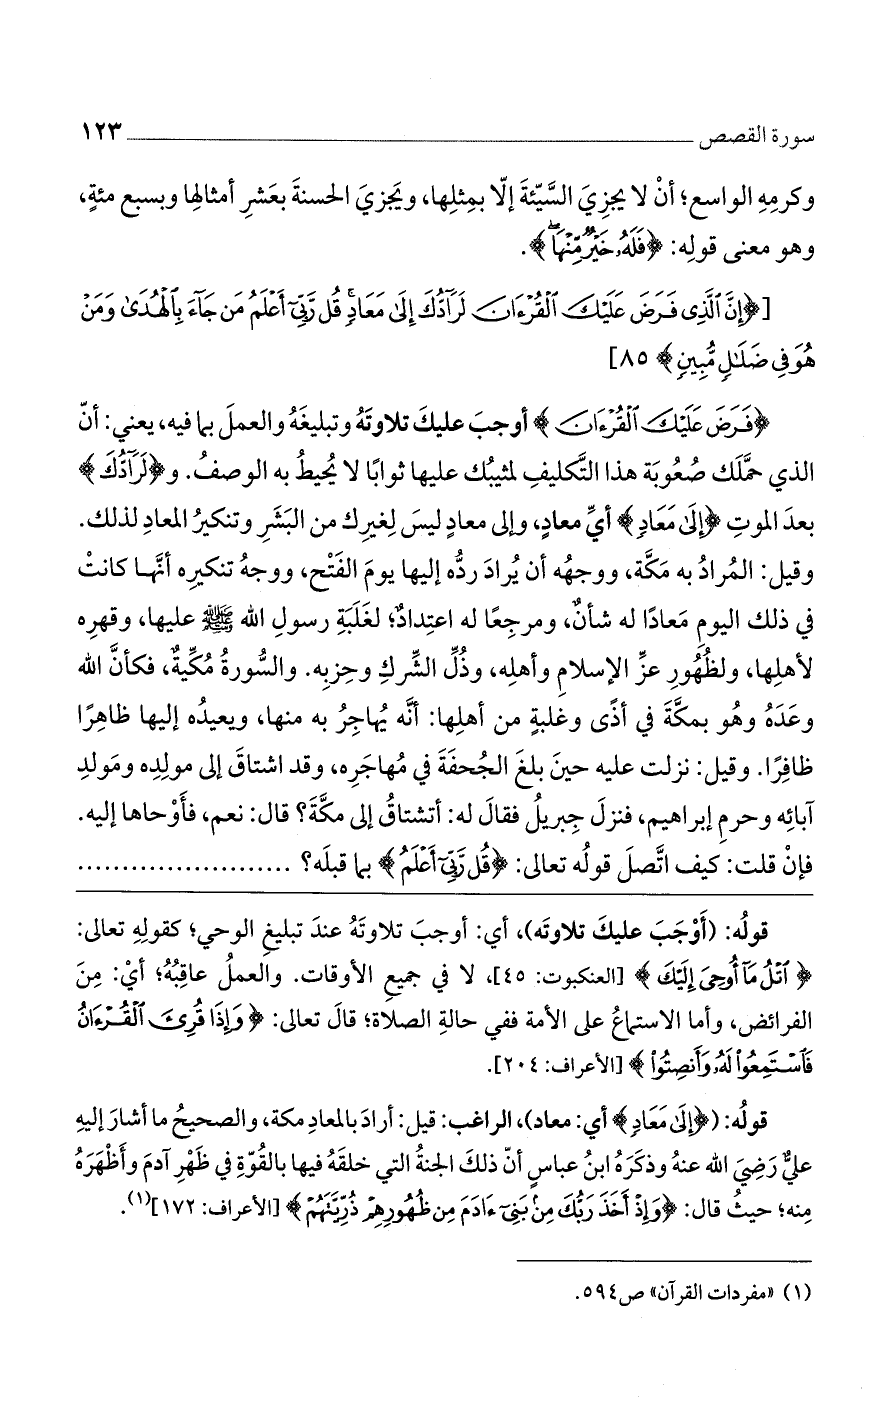 سورة القصص ١٢٣
وكرمِهِ الواسع؛ أنْ لا يجزِيَ السَّيّئةَ إلّا بمِثلِها، ويَجزيَ الحسنةَ بعَشرِ أمثالِها وبسبع مئةٍ،
وهو معنى قولِه: ﴿فَلَهُۥ خَيْرٌ مِّنْهَا﴾.
[﴿إِنَّ ٱلَّذِى فَرَضَ عَلَيْكَ ٱلْقُرْءَانَ لَرَآدُّكَ إِلَىٰ مَعَادٍ ۚ قُل رَّبِّىٓ أَعْلَمُ مَن جَآءَ بِٱلْهُدَىٰ وَمَنْ
هُوَ فِى ضَلَٰلٍ مُّبِينٍ﴾ ٨٥]
﴿فَرَضَ عَلَيْكَ ٱلْقُرْءَانَ﴾ أوجبَ عليكَ تلاوتَهُ وتبليغَهُ والعملَ بما فيه، يعني: أنّ
الذي حمَّلَك صُعُوبَة هذا التَّكليفِ لمثيبُك عليها ثوابًا لا يُحيطُ به الوصفُ. و﴿لَرَآدُّكَ﴾
بعدَ الموتِ ﴿إِلَىٰ مَعَادٍ﴾ أيِّ معادٍ، وإلى معادٍ ليسَ لِغيرِك من البَشَرِ وتنكيرُ المعادِ لذلك.
وقيل: المُرادُ به مَكَّة، ووجهُه أن يُرادَ ردُّه إليها يومَ الفَتْح، ووجهُ تنكيرِه أنَّها كانتْ
في ذلك اليومِ مَعادًا له شأنٌ، ومرجعًا له اعتِدادٌ؛ لغَلَبَةِ رسولِ الله ﷺ عليها، وقهرِه
لأهلِها، ولظُهُورِ عزِّ الإسلامِ وأهلِه، وذُلِّ الشِّركِ وحِزبِه. والسُّورةُ مُكِّيةٌ، فكأنَّ الله
وعَدَهُ وهُو بمكَّةَ في أذًى وغلبةٍ من أهلِها: أنَّه يُهاجِرُ به منها، ويعيدُه إليها ظاهِرًا
ظافِرًا. وقيل: نزلت عليه حينَ بلغَ الجُحفَةَ في مُهاجَرِه، وقد اشتاقَ إلى مولِدِه ومَولدِ
آبائِه وحرمِ إبراهيم، فنزلَ جِبريلُ فقالَ له: أتشتاقُ إلى مكَّةَ؟ قال: نعم، فأَوْحاها إليه.
فإنْ قلت: كيف اتَّصلَ قولُه تعالى: ﴿قُل رَّبِّىٓ أَعْلَمُ﴾ بما قبلَه؟ .......................
قولُه: (أَوْجَبَ عليكَ تلاوتَه)، أي: أوجبَ تلاوتَهُ عندَ تبليغِ الوحي؛ كقولِهِ تعالى:
﴿ٱتْلُ مَآ أُوحِىَ إِلَيْكَ﴾ [العنكبوت: ٤٥]، لا في جميعِ الأوقات. والعملُ عاقِبُهُ؛ أيْ: مِنَ
الفرائض، وأما الاستماعُ على الأمة ففي حالةِ الصلاة؛ قالَ تعالى: ﴿وَإِذَا قُرِئَ ٱلْقُرْءَانُ
فَٱسْتَمِعُوا۟ لَهُۥ وَأَنصِتُوا۟﴾ [الأعراف: ٢٠٤].
قولُه: (﴿إِلَىٰ مَعَادٍ﴾ أي: معاد)، الراغب: قيل: أرادَ بالمعادِ مكة، والصحيحُ ما أشارَ إليهِ
عليٌّ رَضِيَ الله عنهُ وذكَرَهُ ابنُ عباسٍ أنّ ذلكَ الجنةُ التي خلقَهُ فيها بالقُوّةِ في ظَهْرِ آدمَ وأظْهَرَهُ
مِنه؛ حيثُ قال: ﴿وَإِذْ أَخَذَ رَبُّكَ مِنۢ بَنِىٓ ءَادَمَ مِن ظُهُورِهِمْ ذُرِّيَّتَهُمْ﴾ [الأعراف: ١٧٢](١).
(١) «مفردات القرآن» ص٥٩٤.